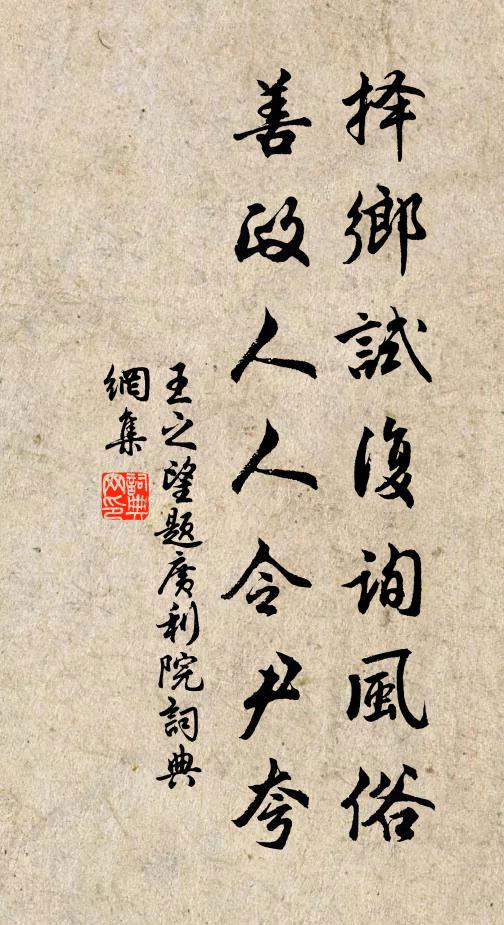 择鄉試復詢風俗
善政人人令尹夸
王之望題廣利院詞典
網集
詞典
網印